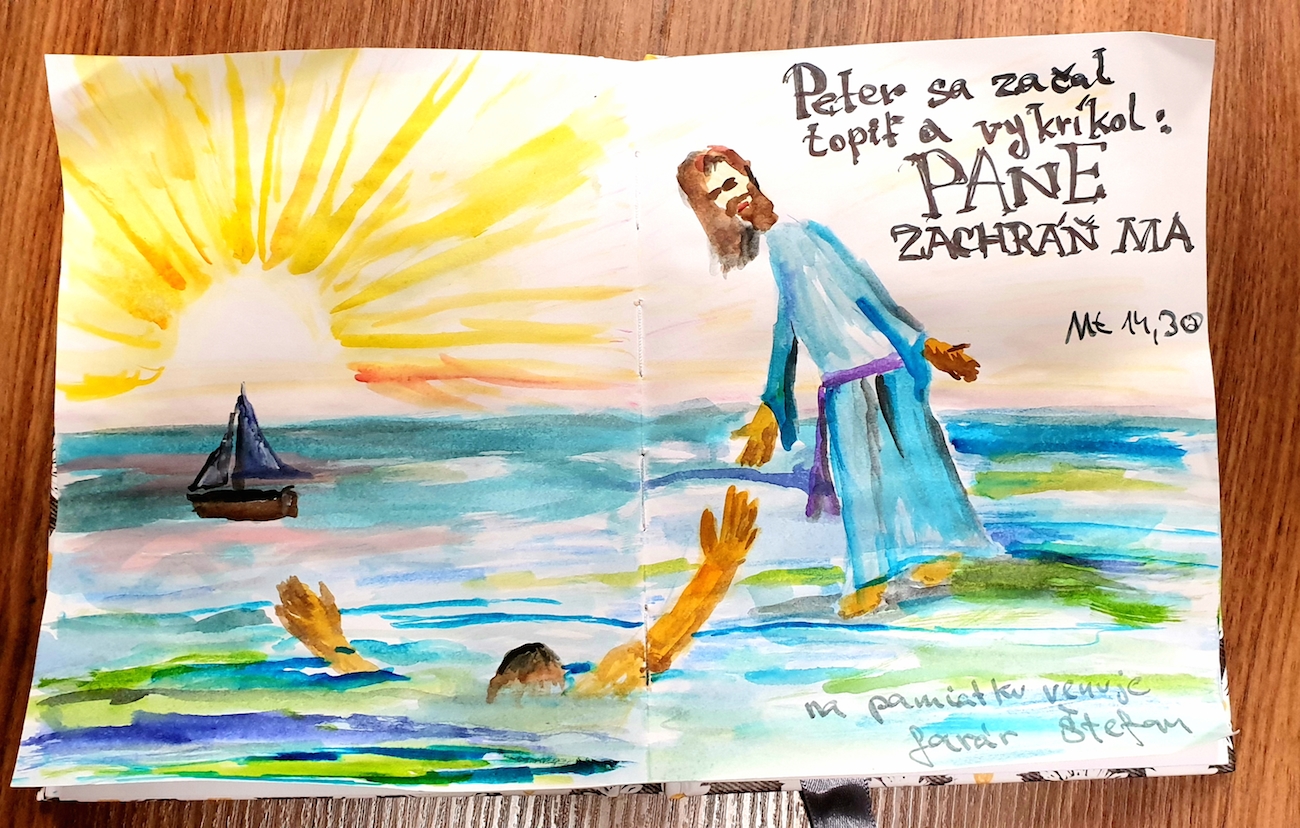 Peter sa začal
topiť a vykríkol:
PANE
ZACHRÁŇ MA
Mt 14,30
na pamiatku venuje
farár Štefan